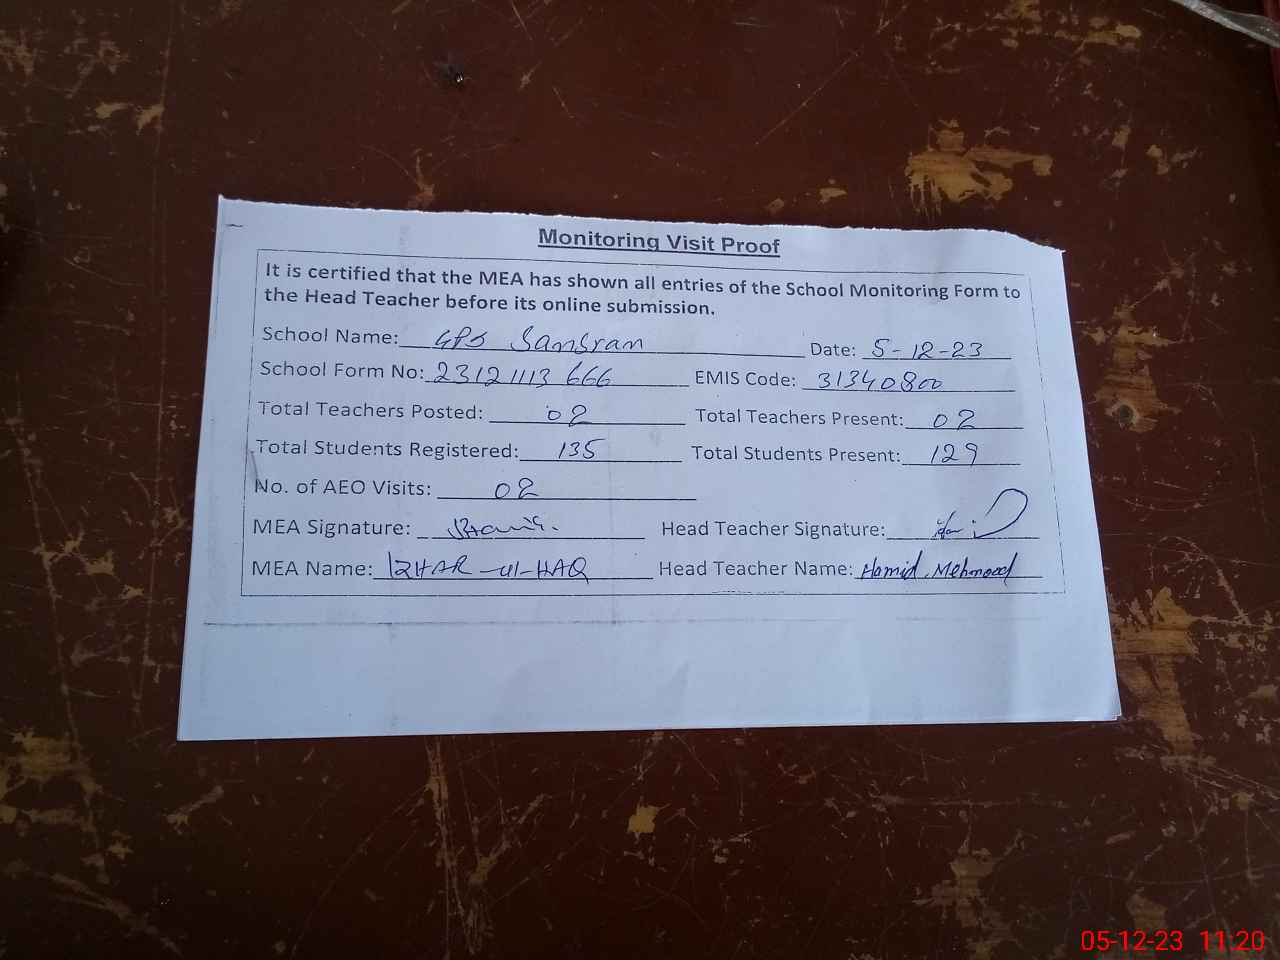 Monitoring Visit Proof
It is certified that the MEA has shown all entries of the School Monitoring Form to
the Head Teacher before its online submission.
School Name: GPS Sansran Date: 5-12-23
School Form No: 23121113 666 EMIS Code: 31340800
Total Teachers Posted: 02 Total Teachers Present: 02
Total Students Registered: 135 Total Students Present: 129
No. of AEO Visits: 02
MEA Signature: Head Teacher Signature:
MEA Name: IZHAR-ul-HAQ Head Teacher Name: Hamid Mehmood
05-12-23 11:20